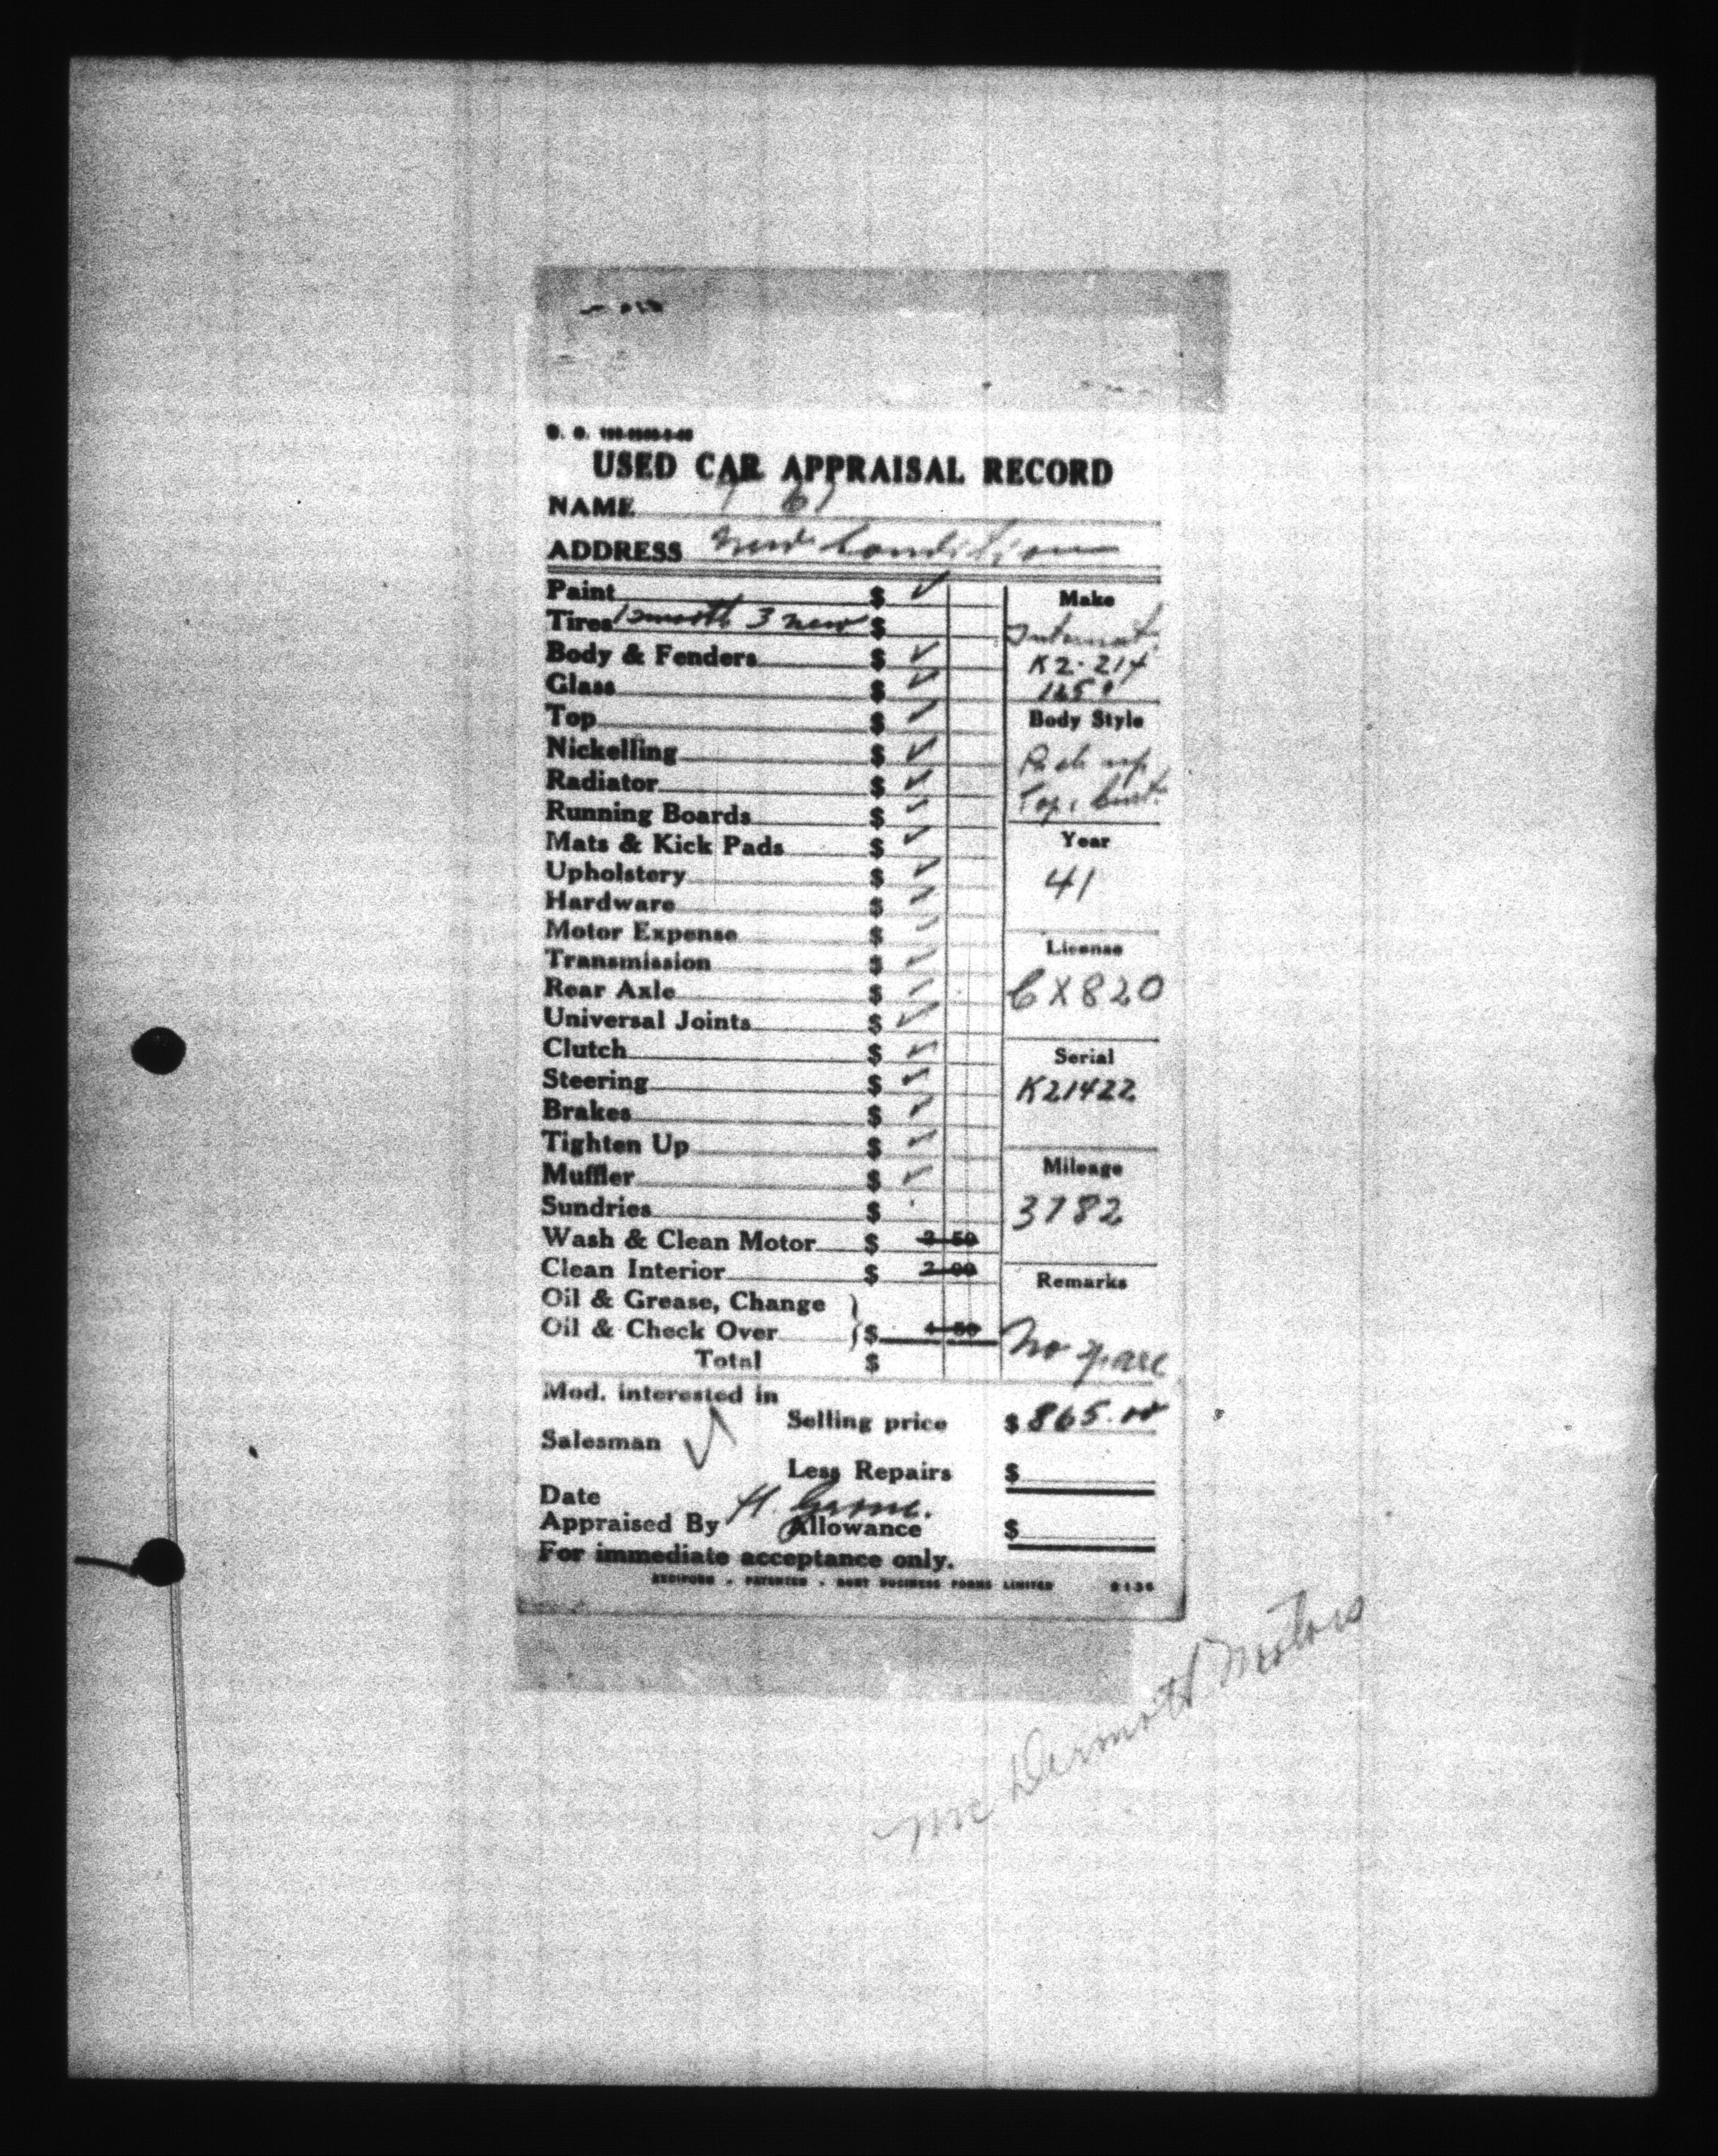 USED CAR APPRAISAL RECORD
NAME 61
ADDRESS New Condition
Paint $ ✓
Tires 1 smooth 3 new $
Body & Fenders $ ✓
Glass $ ✓
Top $ ✓
Nickelling $ ✓
Radiator $ ✓
Running Boards $ ✓
Mats & Kick Pads $ ✓
Upholstery $ ✓
Hardware $ ✓
Motor Expense $ ✓
Transmission $ ✓
Rear Axle $ ✓
Universal Joints $ ✓
Clutch $ ✓
Steering $ ✓
Brakes $ ✓
Tighten Up $ ✓
Muffler $ ✓
Sundries $
Wash & Clean Motor $ 2 50
Clean Interior $ 2 00
Oil & Grease, Change
Oil & Check Over $ 50
Total $
Make
Internat.
K2-214
Body Style
Pick up
Year
41
License
CX820
Serial
K21422
Mileage
3782
Remarks
No spare
Mod. interested in
Selling price $ 865.00
Salesman ✓
Less Repairs $
Date
Appraised By H.
Allowance $
For immediate acceptance only.
REDIFORM • PATENTED • BUSINESS FORMS LIMITED
McDermott Motors